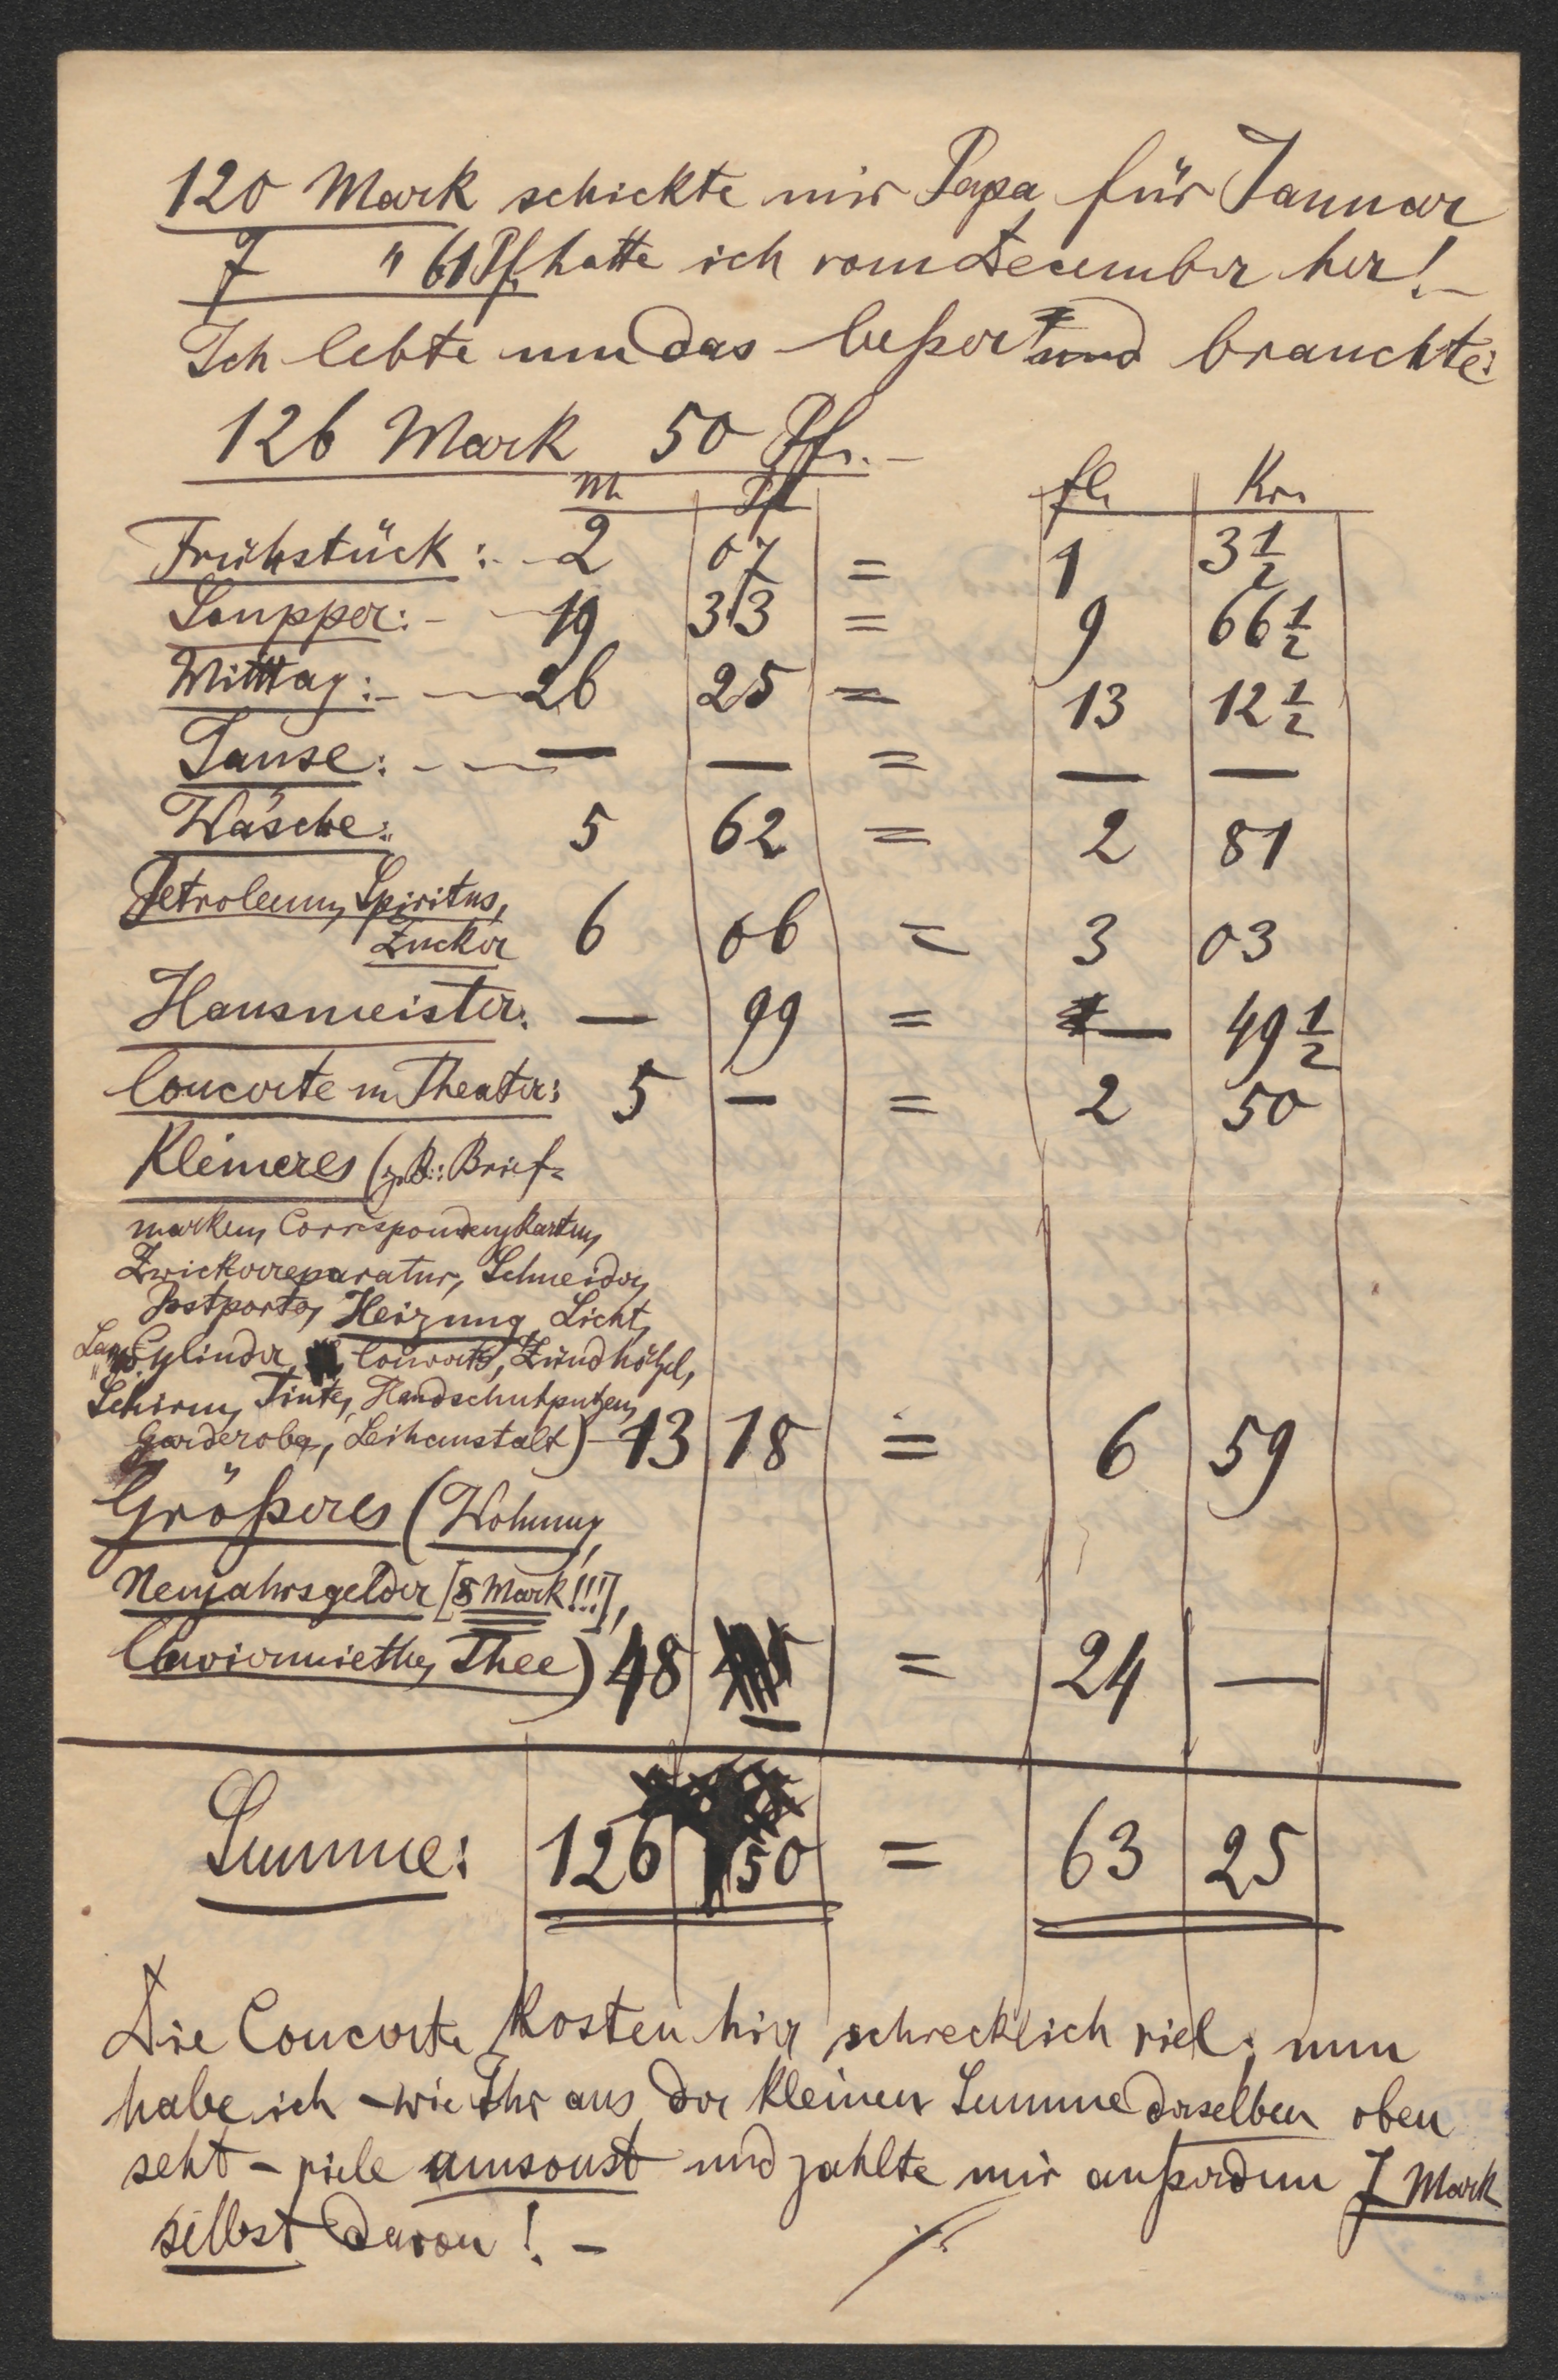 120 Mark schickte mir Papa für Januar
7 " 61 Pf. hatte ich vom December her! –
Ich lebte um das beßer und brauchte:
126 Mark 50 Pf. –
M. Pf fl. Kr.
Frühstück: – 2 07 = 1 3 1/2
Soupper: – 19 33 = 9 66 1/2
Mittag: – 26 25 = 13 12 1/2
Jause: – — — = — —
Wäsche: 5 62 = 2 81
Petroleum, Spiritus,
Zucker 6 06 = 3 03
Hausmeister: — 99 = — 49 1/2
Concerte u Theater: 5 — = 2 50
Kleineres (z. B.: Brief=
marken, Correspondenzkarten,
Zwickerreparatur, Schneider,
Postporto, Heizung, Licht,
Lampencylinder, Couverts, Zündhölzel,
Schirm, Tinte, Handschuhputzen,
Garderobe, Leihanstalt) – 13 18 = 6 59
Größeres (Wohnung,
Neujahrsgelder [8 Mark!!!],
Claviermiethe, Thee) 48 — = 24 —
Summe: 126 50 = 63 25
Die Concerte kosten hier schrecklich viel; nun
habe ich – wie Ihr aus der kleinen Summe derselben oben
seht – viele umsonst und zahlte mir außerdem 7 Mark
selbst davon! –